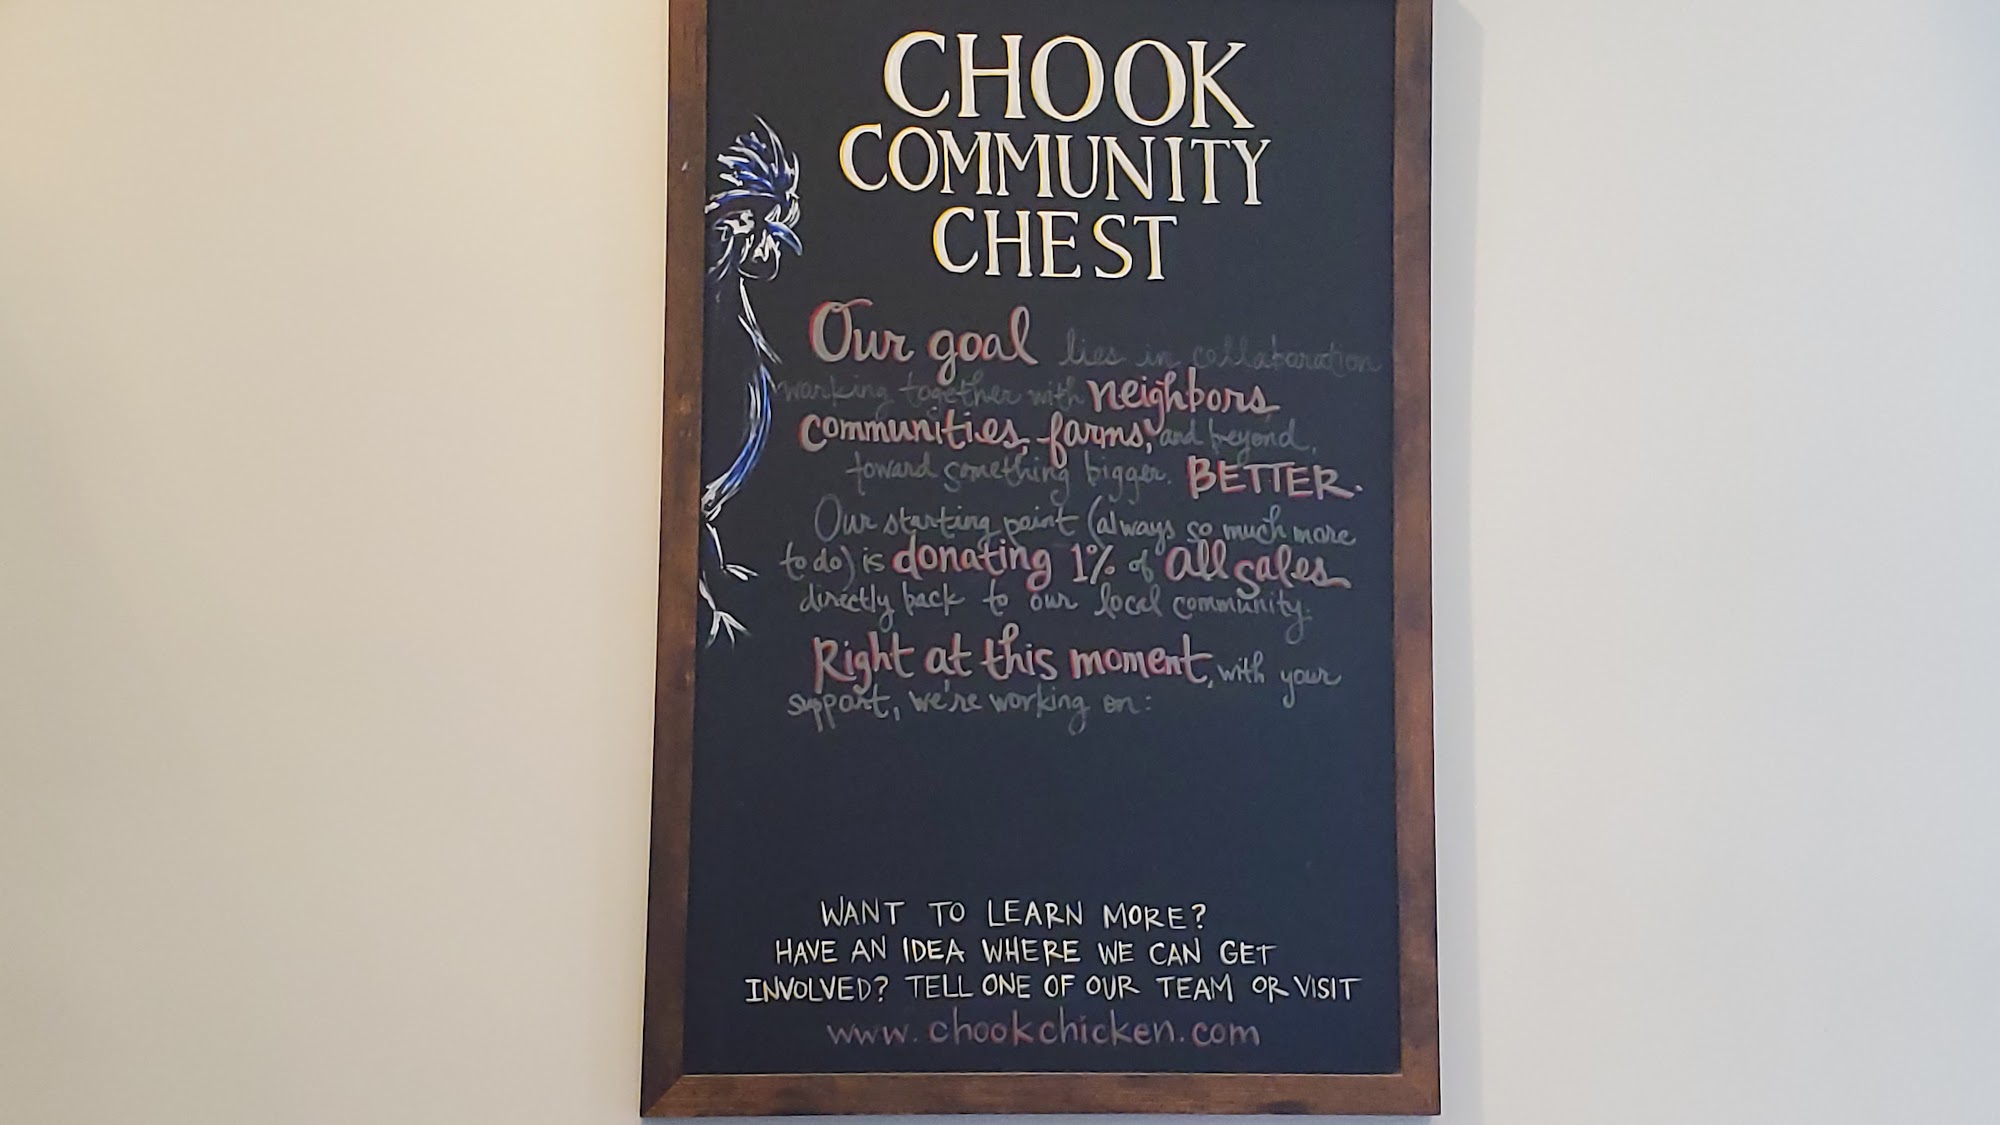 CHOOK
COMMUNITY
CHEST
Our goal lies in collaboration
working together with neighbors,
communities, farms, and beyond,
toward something bigger. BETTER.
Our starting point (always so much more
to do) is donating 1% of all sales
directly back to our local community.
Right at this moment, with your
support, we're working on:
WANT TO LEARN MORE?
HAVE AN IDEA WHERE WE CAN GET
INVOLVED? TELL ONE OF OUR TEAM OR VISIT
www.chookchicken.com